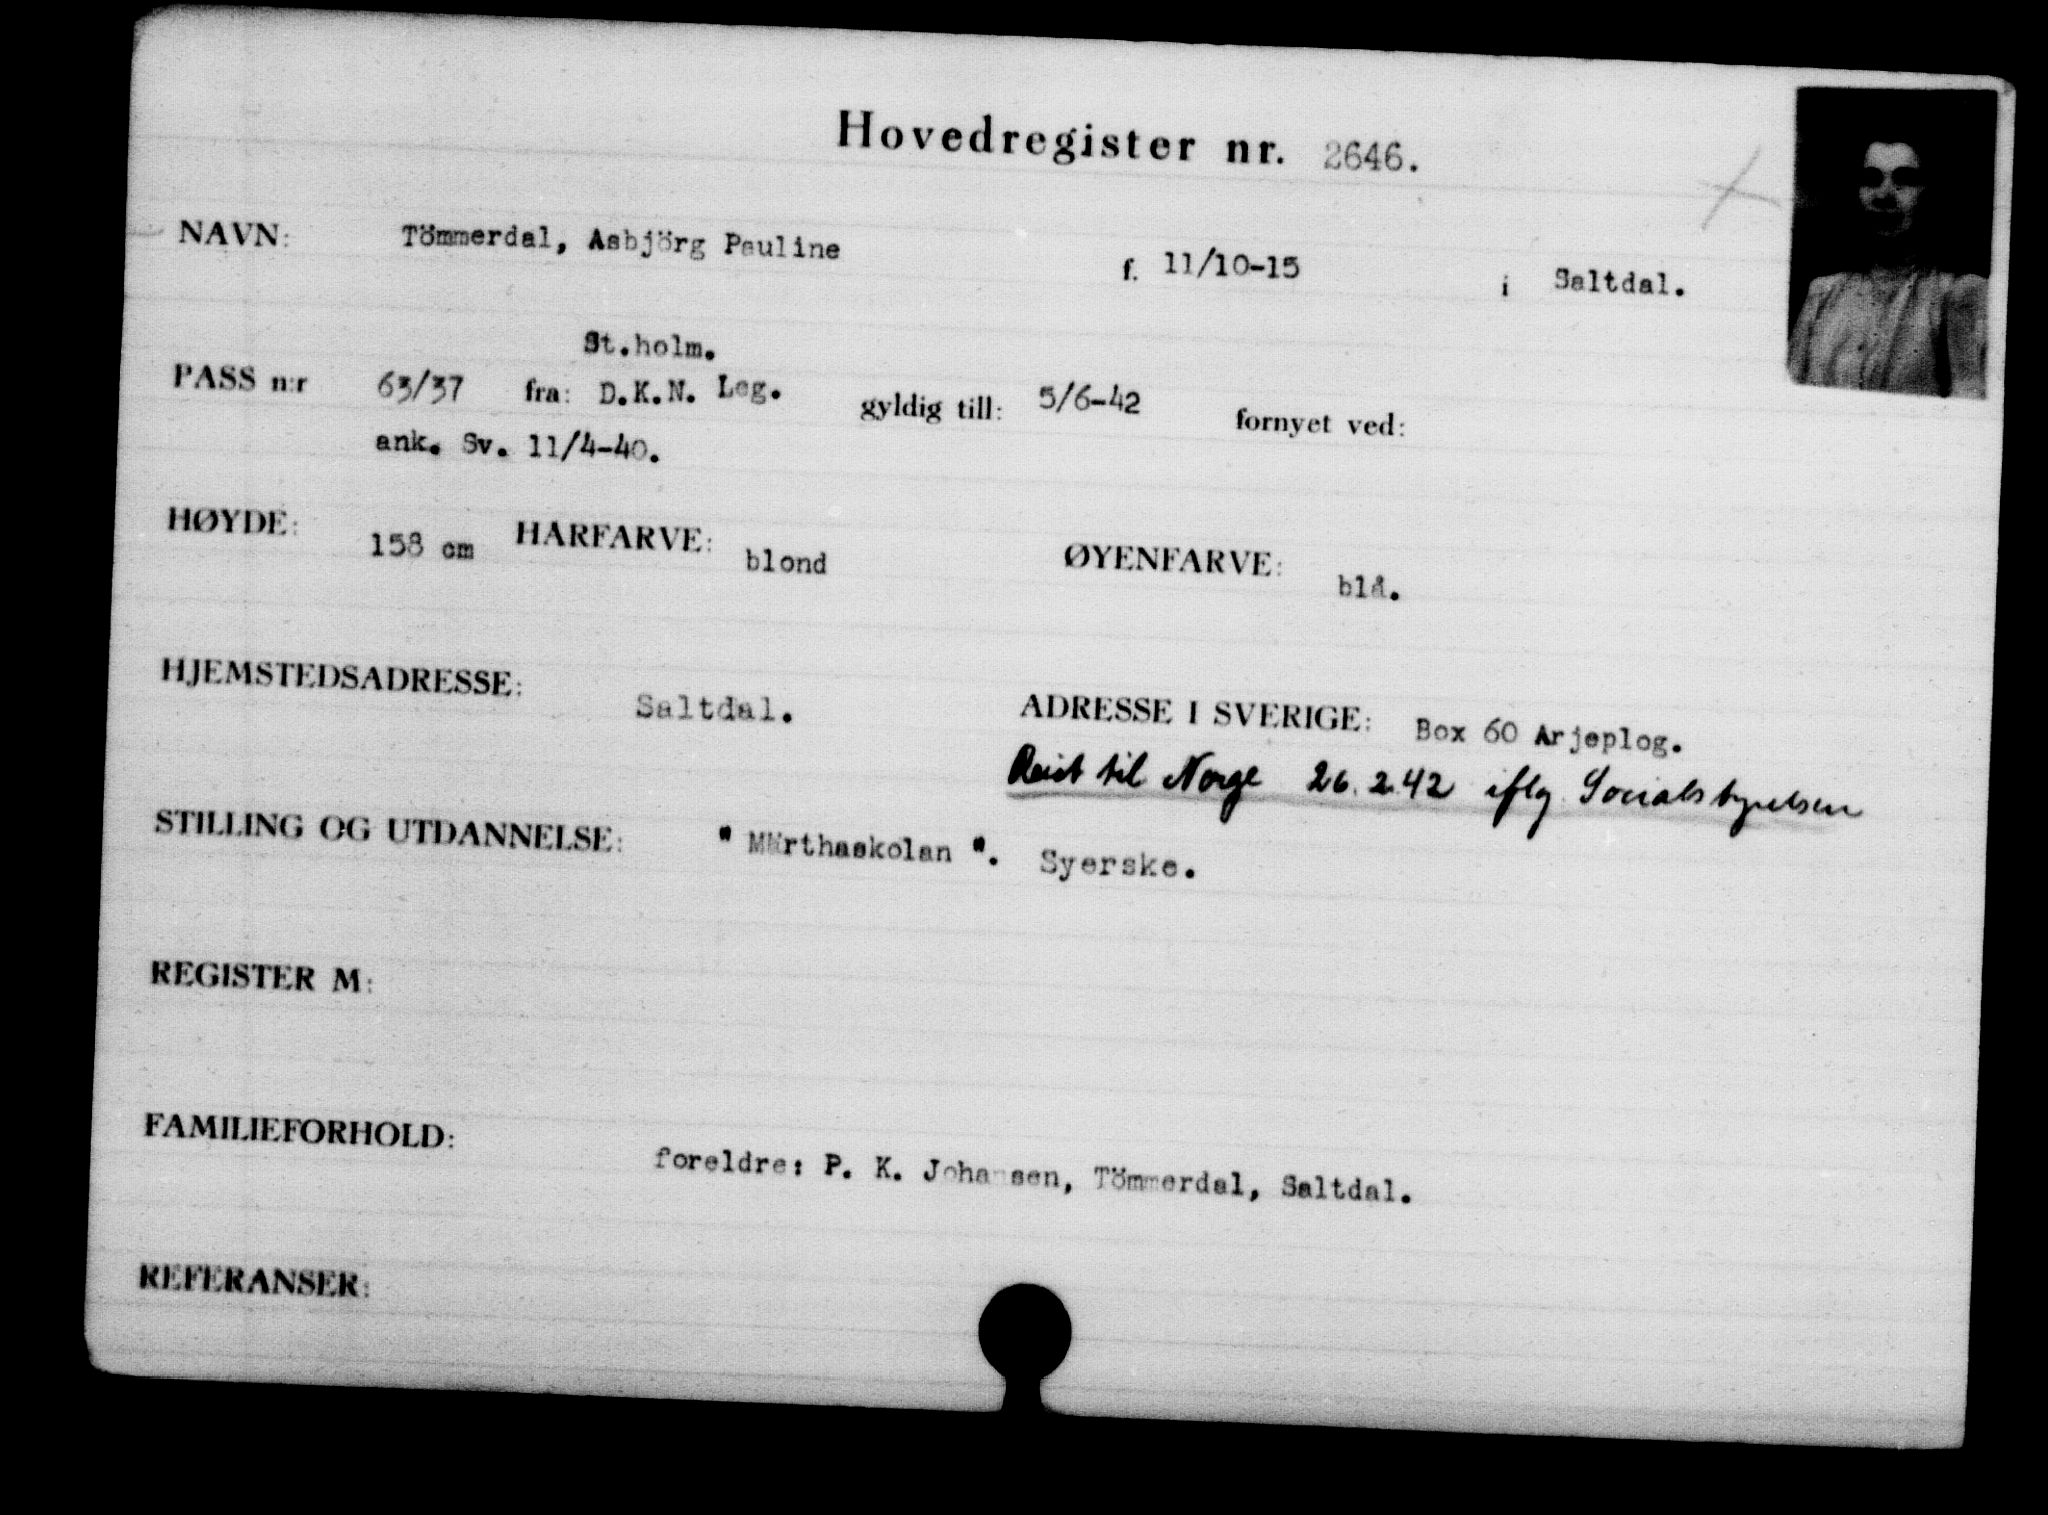 Hovedregister nr. 2646.
NAVN: Tömmerdal, Asbjörg Pauline f. 11/10-15 i Saltdal.
St.holm.
PASS n:r 63/37 fra: D.K.N. Leg. gyldig till: 5/6-42 fornyet ved:
ank. Sv. 11/4-40.
HØYDE: 158 cm HÅRFARVE: blond ØYENFARVE: blå.
HJEMSTEDSADRESSE: Saltdal. ADRESSE I SVERIGE: Box 60 Arjeplog.
Reist til Norge 26.2.42 iflg Socialstyrelsen
STILLING OG UTDANNELSE: " Märthaskolan ". Syerske.
REGISTER M:
FAMILIEFORHOLD: foreldre: P. K. Johansen, Tömmerdal, Saltdal.
REFERANSER: